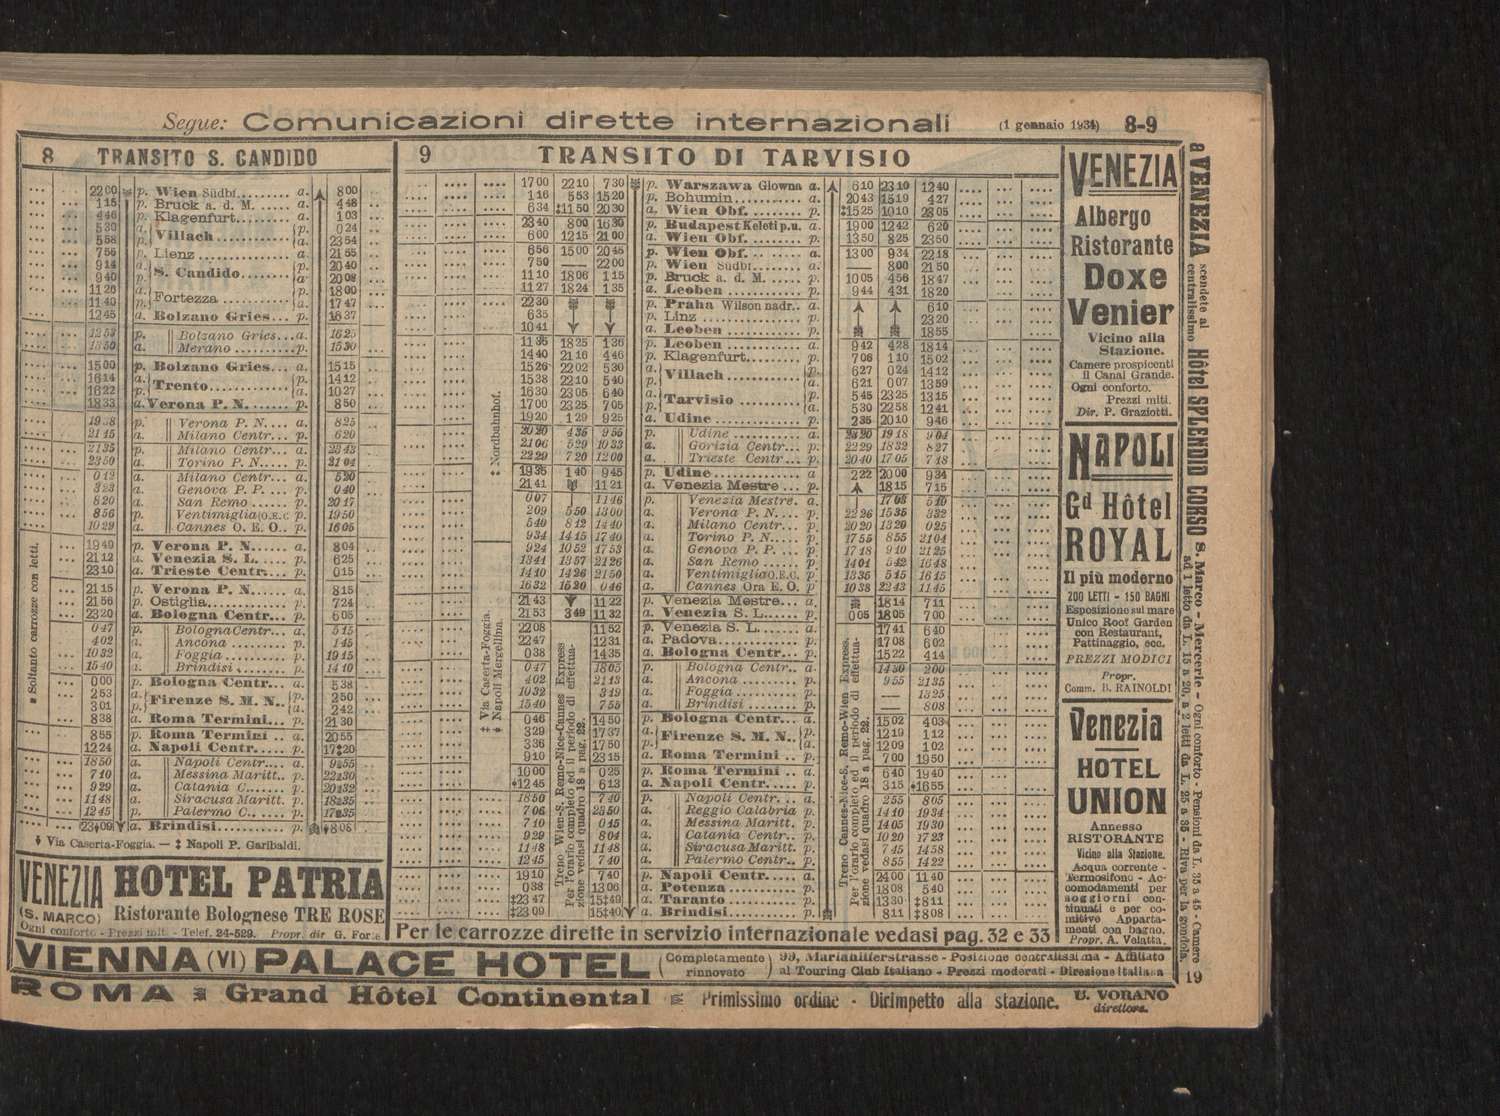 Segue: Comunicazioni dirette internazionali (1 gennaio 1934) 8-9
8 TRANSITO S. CANDIDO
22 00 p. Wien Südbf. a. 8 00
1 15 p. Bruck a. d. M. a. 4 48
4 46 p. Klagenfurt a. 1 03
5 30 a. Villach p. 0 24
5 58 p. Villach a. 23 54
7 56 p. Lienz a. 21 55
9 14 a. S. Candido p. 20 40
9 40 p. S. Candido a. 20 08
11 26 a. Fortezza p. 18 00
11 40 p. Fortezza a. 17 47
12 45 a. Bolzano Gries p. 16 37
p. Bolzano Gries a. 16 25
a. Merano p. 15 30
15 00 p. Bolzano Gries a. 15 15
16 14 a. Trento p. 14 12
16 22 p. Trento a. 10 27
18 33 a. Verona P. N. p. 8 50
p. Verona P. N. a. 8 25
21 45 a. Milano Centr. p. 6 20
21 35 p. Milano Centr. a. 23 43
23 50 a. Torino P. N. p. 21 04
a. Milano Centr. p. 5 20
3 23 a. Genova P. P. p. 0 40
6 20 a. San Remo p. 20 17
8 56 a. Ventimiglia (O.E.C. p. 19 50
10 29 a. Cannes O. E. O. p. 16 05
19 49 p. Verona P. N. a. 8 04
21 12 a. Venezia S. L. p. 6 25
23 10 a. Trieste Centr. p. 0 15
21 15 p. Verona P. N. a. 8 15
21 56 p. Ostiglia a. 7 24
23 20 a. Bologna Centr. p. 6 05
0 47 p. Bologna Centr. a. 5 15
4 02 a. Ancona p. 1 45
10 32 a. Foggia p. 19 15
15 40 a. Brindisi p. 14 10
0 00 p. Bologna Centr. a. 5 38
2 53 a. Firenze S. M. N. p. 2 50
3 01 p. Firenze S. M. N. a. 2 42
8 38 a. Roma Termini p. 21 30
8 55 p. Roma Termini a. 20 55
12 24 a. Napoli Centr. p. 17‡20
18 50 a. Napoli Centr. p.
7 10 a. Messina Maritt. p.
9 29 a. Catania C. p.
11 48 a. Siracusa Maritt. p.
12 45 a. Palermo C. p.
23 09 a. Brindisi p. 8 08
Soltanto carrozze con letti.
Via Caserta-Foggia. — ‡ Napoli P. Garibaldi.
9 TRANSITO DI TARVISIO
17 00 22 10 7 30 p. Warszawa Glowna a. 6 10 23 10 12 40
1 16 5 53 15 20 p. Bohumin a. 20 43 15 19 4 27
6 34 ‡11 50 20 30 a. Wien Obf. p. ‡15 25 10 10 23 05
23 40 8 00 16 30 p. Budapest Keleti p.u. a. 19 00 12 42 6 20
6 00 12 15 21 00 a. Wien Obf. p. 13 50 8 25 23 50
6 56 15 00 20 45 p. Wien Obf. a. 13 00 9 34 22 18
7 50 — 22 00 p. Wien Südbf. a. — 8 00 21 50
11 10 18 06 1 15 p. Bruck a. d. M. p. 10 05 4 56 18 47
11 27 18 24 1 35 a. Leoben p. 9 44 4 31 18 20
22 30 p. Praha Wilson nadr. a. 6 10
6 35 p. Linz a. 23 20
10 41 a. Leoben p. 18 55
11 35 18 25 1 36 p. Leoben a. 9 42 4 28 18 14
14 40 21 16 4 46 p. Klagenfurt p. 7 06 1 10 15 02
15 26 22 02 5 30 a. Villach p. 6 27 0 24 14 12
15 38 22 10 5 40 p. Villach a. 6 21 0 07 13 59
16 30 23 05 6 40 a. Tarvisio p. 5 45 23 25 13 15
17 00 23 25 7 05 p. Tarvisio a. 5 30 22 58 12 41
19 20 1 20 9 25 a. Udine p. 2 35 20 10 9 46
20 20 4 35 9 55 p. Udine a. 19 18 9 04
21 06 5 29 10 33 a. Gorizia Centr. p. 22 29 18 32 8 27
22 29 7 20 12 00 a. Trieste Centr. p. 20 40 17 05 7 18
19 35 1 40 9 45 p. Udine a. 2 22 20 00 9 34
21 41 11 21 a. Venezia Mestre p. 18 15 7 15
0 07 11 46 p. Venezia Mestre a. 17 03 5 10
2 09 5 50 13 00 a. Verona P. N. p. 22 26 15 35 3 32
5 40 8 12 14 40 a. Milano Centr. p. 20 20 13 20 0 25
9 34 14 15 17 40 a. Torino P. N. p. 17 55 8 55 21 04
9 24 10 52 17 53 a. Genova P. P. p. 17 18 9 10 21 25
13 41 13 57 21 26 a. San Remo p. 14 01 5 42 16 48
14 10 14 26 21 50 a. Ventimiglia O.E.C. p. 13 35 5 15 16 15
16 32 16 20 0 46 a. Cannes Ora E. O. p. 10 38 22 43 11 45
21 43 11 22 p. Venezia Mestre a. 18 14 7 11
21 53 3 49 11 32 a. Venezia S. L. p. 0 05 18 05 7 00
22 08 11 52 p. Venezia S. L. a. 17 41 6 40
22 47 12 31 a. Padova p. 17 08 6 02
0 38 14 35 a. Bologna Centr. p. 15 22 4 14
0 47 18 05 p. Bologna Centr. a. 14 30 2 00
4 02 21 13 a. Ancona p. 9 55 21 35
10 32 3 19 a. Foggia p. — 13 25
15 40 7 55 a. Brindisi p. — 8 08
0 46 14 50 p. Bologna Centr. a. 15 02 4 03
3 29 17 37 a. Firenze S. M. N. p. 12 19 1 12
3 36 17 50 p. Firenze S. M. N. a. 12 09 1 02
9 10 23 15 a. Roma Termini p. 7 00 19 50
10 00 0 25 p. Roma Termini a. 6 40 19 40
12 45 6 13 a. Napoli Centr. p. 3 15 16 55
18 50 7 40 p. Napoli Centr. a. 2 55 8 05
7 06 23 50 a. Reggio Calabria p. 14 10 19 34
7 10 0 45 a. Messina Maritt. p. 14 05 19 30
9 29 8 04 a. Catania Centr. p. 10 20 17 23
11 48 11 48 a. Siracusa Maritt. p. 7 45 14 58
12 45 7 40 a. Palermo Centr. p. 8 55 14 22
19 10 7 40 p. Napoli Centr. a. 24 00 11 40
0 38 13 06 a. Potenza p. 18 08 5 40
‡23 47 15‡49 a. Taranto p. 13 30 ‡8 11
‡23 09 15‡40 a. Brindisi p. 8 11 ‡8 08
‡ Nordbahnhof.
‡ Via Caserta-Foggia
Napoli Mergellina.
Treno Wien-S. Remo-Nice-Cannes Express
Per l'orario completo ed il periodo di effettua-
zione vedasi quadro 18 a pag. 22.
Treno Cannes-Nice-S. Remo-Wien Express.
Per l'orario completo ed il periodo di effettua-
zione vedasi quadro 18 a pag. 22.
Per le carrozze dirette in servizio internazionale vedasi pag. 32 e 33
VENEZIA
Albergo
Ristorante
Doxe
Venier
Vicino alla
Stazione.
Camere prospicenti
il Canal Grande.
Ogni conforto.
Prezzi miti.
Dir. P. Graziotti.
NAPOLI
Gd Hôtel
ROYAL
Il più moderno
200 LETTI - 150 BAGNI
Esposizione sul mare
Unico Roof Garden
con Restaurant,
Pattinaggio, ecc.
PREZZI MODICI
Propr.
Comm. B. RAINOLDI
Venezia
HOTEL
UNION
Annesso
RISTORANTE
Vicino alla Stazione.
Acqua corrente -
Termosifone - Ac-
comodamenti per
soggiorni con-
tinuati e per co-
mitive Apparta-
menti con bagno.
Propr. A. Velatta.
a VENEZIA scendete al centralissimo Hôtel SPLENDID CORSO S. Marco - Mercerie - Ogni conforto - Pensioni da L. 35 a 45 - Camere
ad 1 letto da L. 15 a 20, a 2 letti da L. 25 a 35 - Riva per la gondola.
19
VENEZIA HOTEL PATRIA
(S. MARCO) Ristorante Bolognese TRE ROSE
Ogni conforto - Prezzi miti - Telef. 24-529. Propr. dir G. Forte
VIENNA (VI) PALACE HOTEL (Completamente rinnovato) 99, Mariahilferstrasse - Posizione centralissima - Affiliato
al Touring Club Italiano - Prezzi moderati - Direzione italiana
ROMA Grand Hôtel Continental Primissimo ordine - Dirimpetto alla stazione. U. VORANO
direttore.